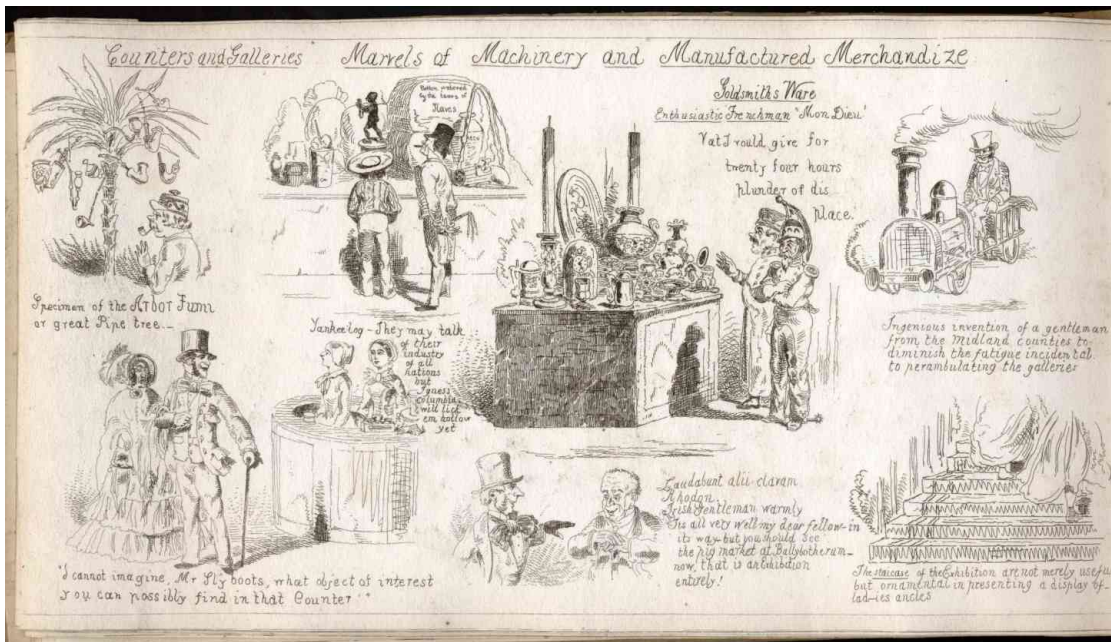 Counters and Galleries Marvels of Machinery and Manufactured Merchandize
Goldsmiths Ware
Enthusiastic Frenchman "Mon Dieu'
Vat I vould give for
twenty four hours
plunder of dis
place.
Cotton produced
by the labour of
Slaves
Specimen of the Arbor Fumi
or great Pipe tree._
Yankee log - They may talk
of their
industry
of all
nations
but
I guess
columbia
will lick
em hollow
yet
Ingenious invention of a gentleman
from the Midland counties to
diminish the fatigue incidental
to perambulating the galleries
"I cannot imagine, Mr Slyboots, what object of interest
you can possibly find in that Counter."
Laudabunt alii claram
Rhodon
Irish Gentleman warmly
Tis all very well my dear fellow in
its way but you should see
the pig market at Ballybotherum_
now, that is an exhibition
entirely!
The staicase of the Exhibition are not merely useful
but ornamental in presenting a display of_
lad-ies ancles